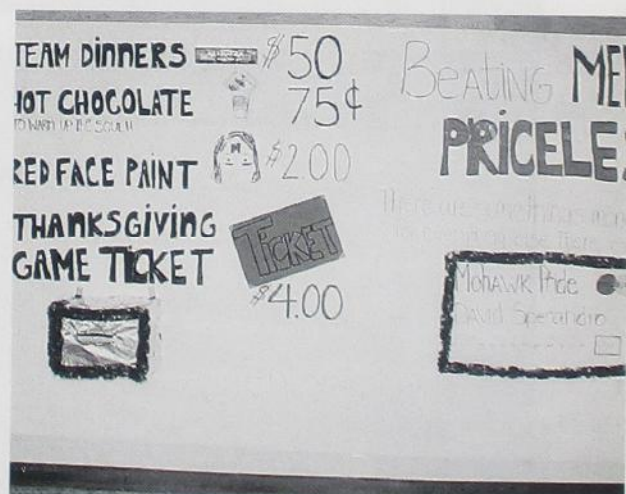 TEAM DINNERS $50
HOT CHOCOLATE 75¢
RED FACE PAINT $2.00
M
THANKSGIVING
GAME TICKET
TICKET
$4.00
BEATING
PRICELE
There are some things
Mohawk Pride
David Sperandio